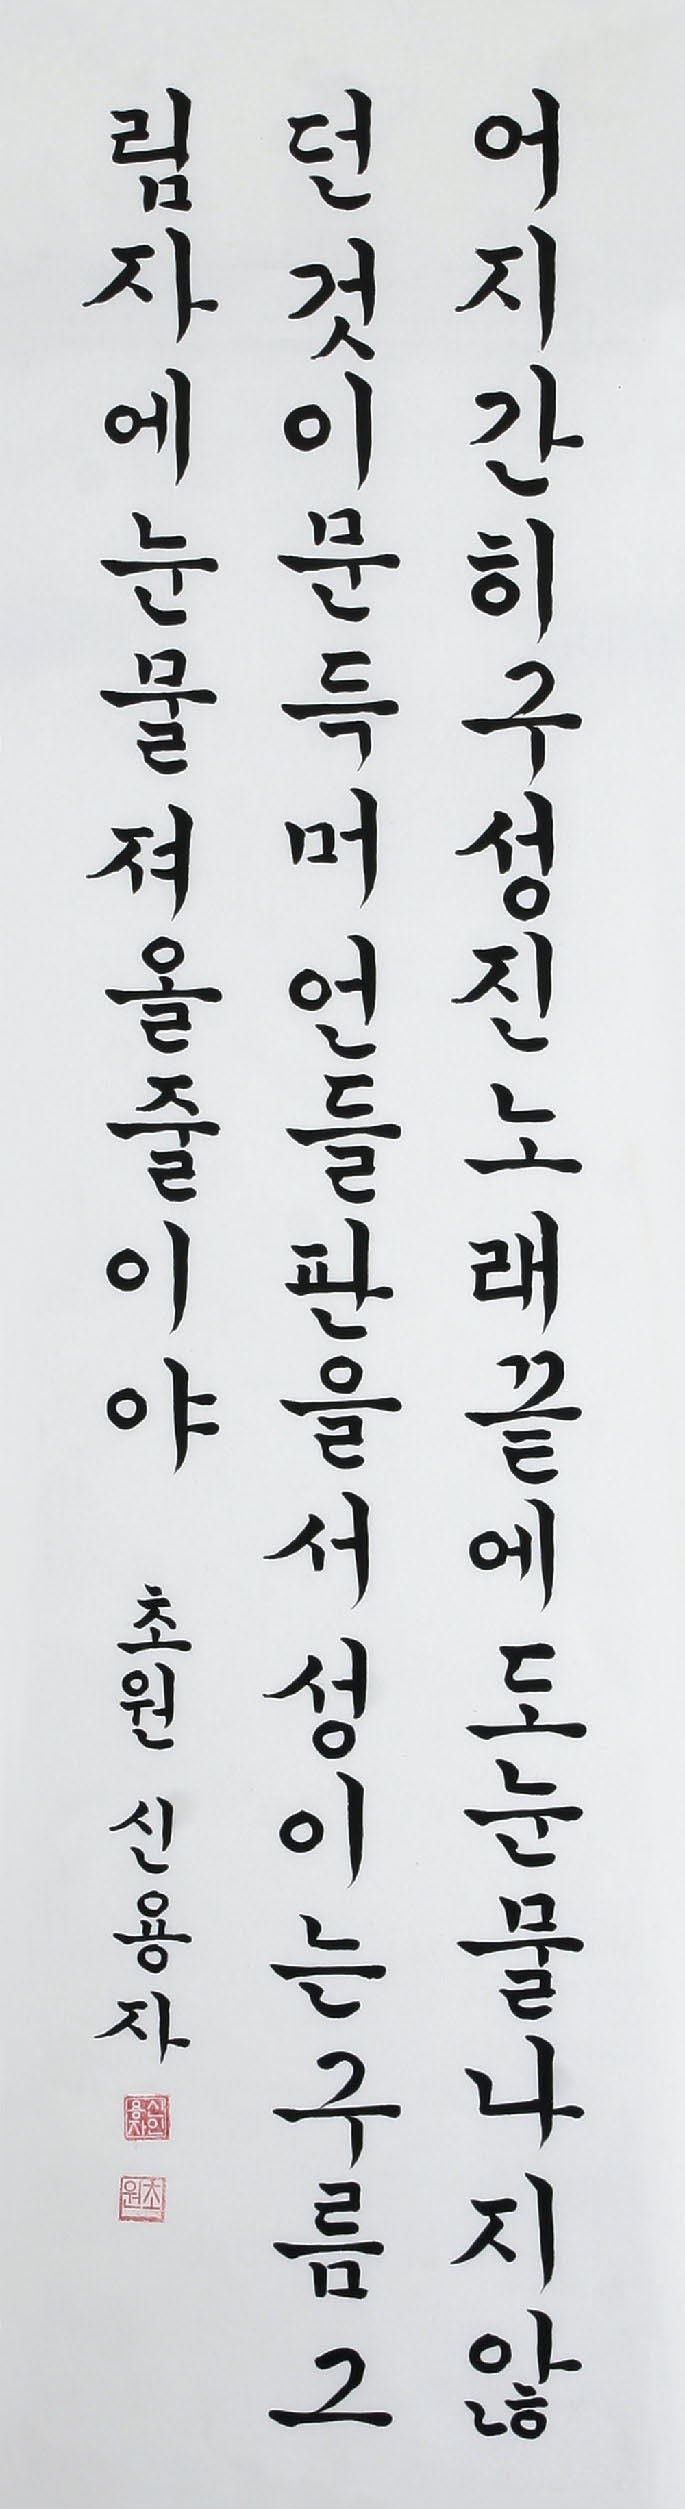 어지간히구성진노래끝에도눈물나지않
던것이문득머언들판을서성이는구름그
림자에눈물져올줄이야
초원 신용자
초원